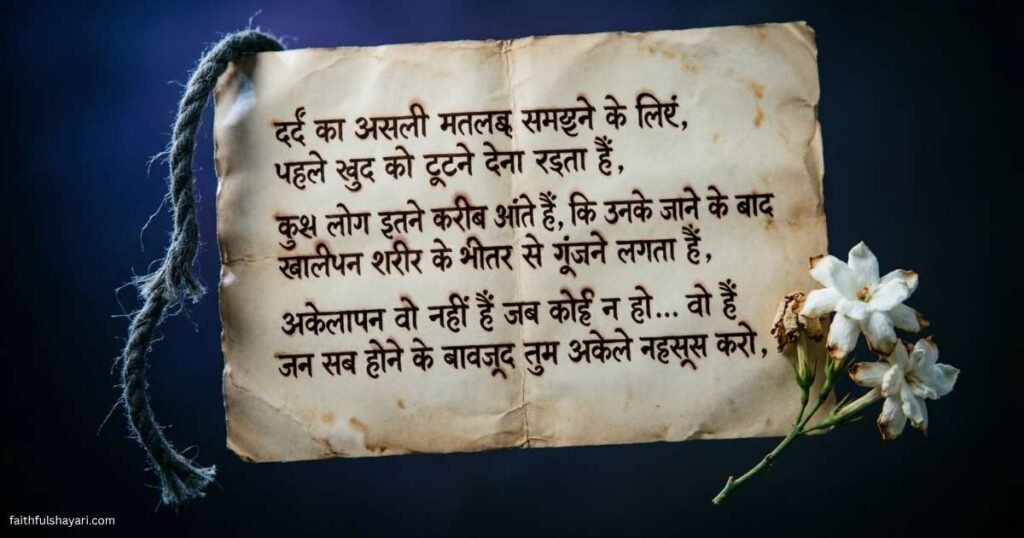 दर्दं का असली मतलब समझने के लिएं,
पहले खुद को टूटने देना रड्ता हैं,
कुश लोग इतने करीब आंते हैं, कि उनके जाने के बाद
खालीपन शरीर के भीतर से गूंजने लगता हैं,
अकेलापन वो नहीं हैं जब कोई न हो... वो हैं
जन सब होने के बावजूद तुम अकेले नहसूस करो,
faithfulshayari.com